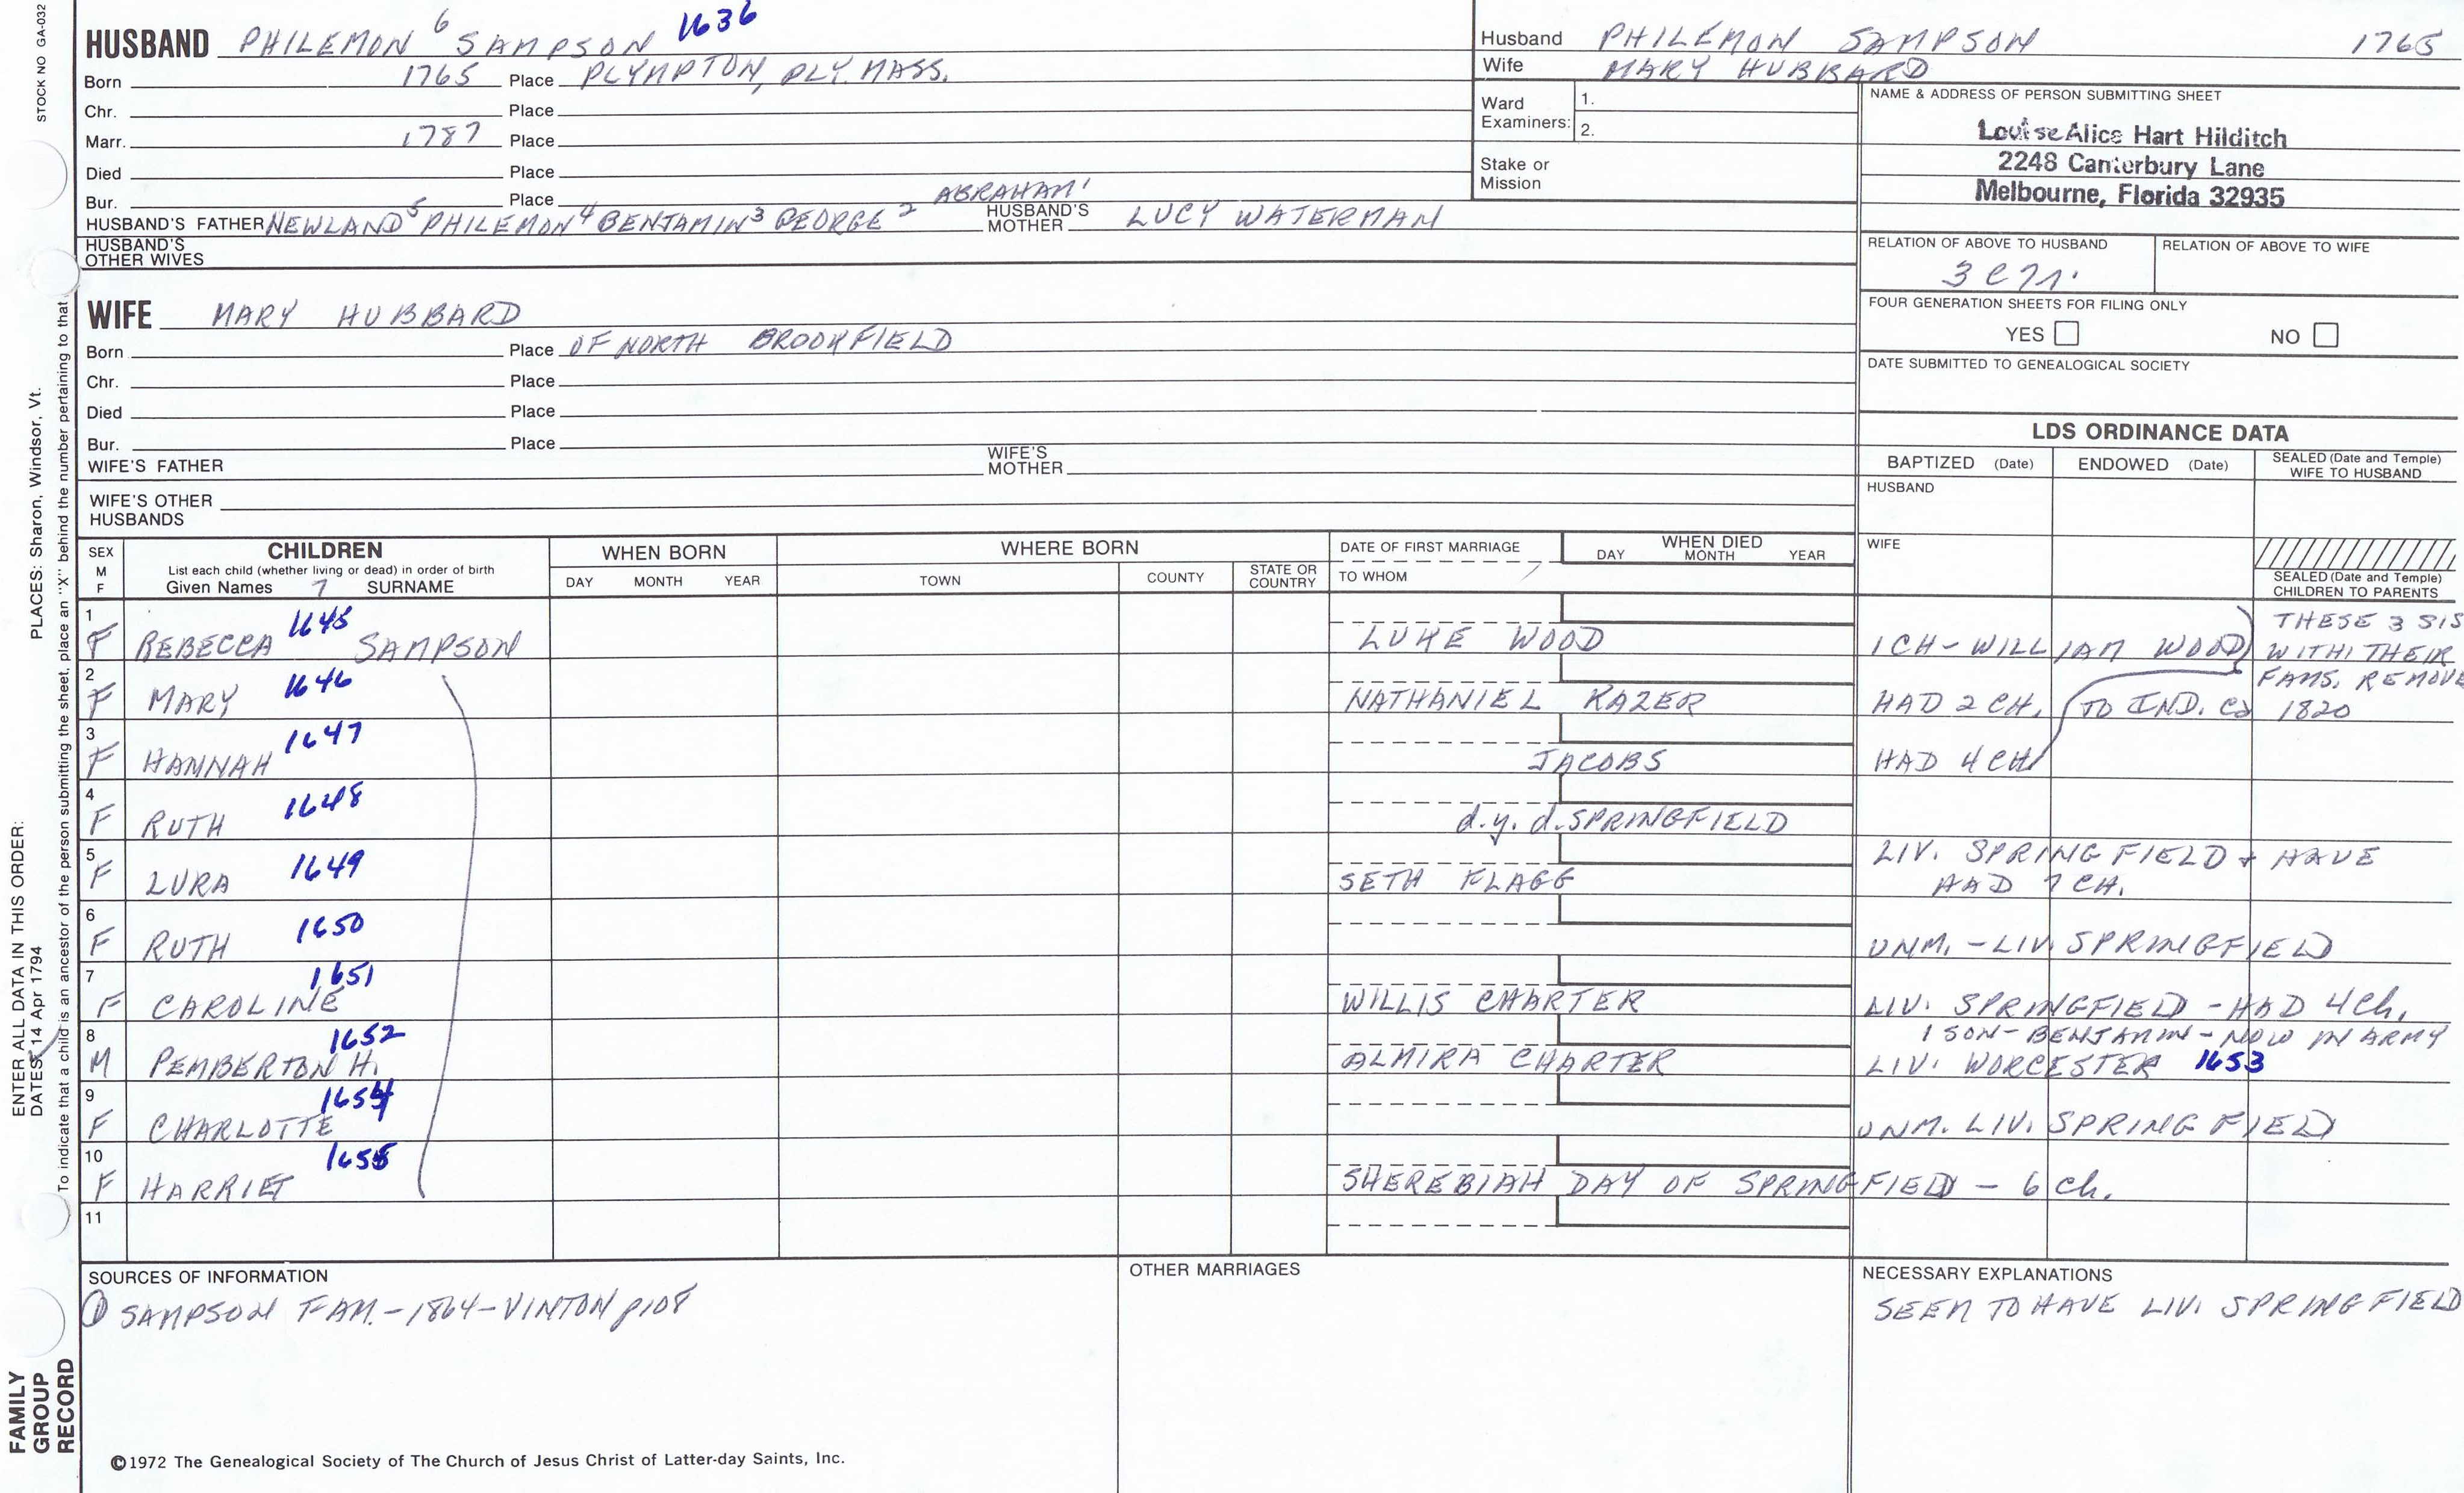 STOCK NO GA-032
HUSBAND PHILEMON 6 SAMPSON 1636
Born 1765 Place PLYMPTON, PLY. MASS.
Chr. Place
Marr. 1787 Place
Died Place
Bur. Place
ABRAHAM 1
HUSBAND'S FATHER NEWLAND 5 PHILEMON 4 BENJAMIN 3 GEORGE 2 HUSBAND'S MOTHER LUCY WATERMAN
HUSBAND'S OTHER WIVES
Husband PHILEMON SAMPSON 1765
Wife MARY HUBBARD
Ward Examiners: 1.
2.
Stake or Mission
NAME & ADDRESS OF PERSON SUBMITTING SHEET
Louise Alice Hart Hilditch
2248 Canterbury Lane
Melbourne, Florida 32935
RELATION OF ABOVE TO HUSBAND RELATION OF ABOVE TO WIFE
FOUR GENERATION SHEETS FOR FILING ONLY
YES NO
DATE SUBMITTED TO GENEALOGICAL SOCIETY
WIFE MARY HUBBARD
Born Place OF NORTH BROOKFIELD
Chr. Place
Died Place
Bur. Place
WIFE'S FATHER WIFE'S MOTHER
WIFE'S OTHER HUSBANDS
LDS ORDINANCE DATA
BAPTIZED (Date) ENDOWED (Date) SEALED (Date and Temple) WIFE TO HUSBAND
HUSBAND
WIFE
SEALED (Date and Temple) CHILDREN TO PARENTS
SEX M F
CHILDREN
List each child (whether living or dead) in order of birth
Given Names 7 SURNAME
WHEN BORN
DAY MONTH YEAR
WHERE BORN
TOWN COUNTY STATE OR COUNTRY
DATE OF FIRST MARRIAGE
TO WHOM
WHEN DIED
DAY MONTH YEAR
1 F REBECCA 1645 SAMPSON LUKE WOOD 1 CH - WILLIAM WOOD
THESE 3 SIS
WITH THEIR
FAMS. REMOVE
2 F MARY 1646 NATHANIEL RAZER HAD 2 CH. TO IND. ca 1820
3 F HANNAH 1647 JACOBS HAD 4 CH
4 F RUTH 1648 d.y. d. SPRINGFIELD
5 F LURA 1649 SETH FLAGG LIV. SPRINGFIELD + HAVE
HAD 7 CH.
6 F RUTH 1650 UNM. - LIV SPRINGFIELD
7 F CAROLINE 1651 WILLIS CHARTER LIV. SPRINGFIELD - HAD 4 Ch.
8 M PEMBERTON H. 1652 ALMIRA CHARTER 1 SON - BENJAMIN - NOW IN ARMY
LIV. WORCESTER 1653
9 F CHARLOTTE 1654 UNM. LIV. SPRINGFIELD
10 F HARRIET 1655 SHEREBIAH DAY OF SPRINGFIELD - 6 Ch.
11
SOURCES OF INFORMATION
① SAMPSON FAM. - 1864 - VINTON p108
OTHER MARRIAGES
NECESSARY EXPLANATIONS
SEEM TO HAVE LIV. SPRINGFIELD
©1972 The Genealogical Society of The Church of Jesus Christ of Latter-day Saints, Inc.
FAMILY GROUP RECORD
ENTER ALL DATA IN THIS ORDER:
DATES: 14 Apr 1794
PLACES: Sharon, Windsor, Vt.
To indicate that a child is an ancestor of the person submitting the sheet, place an "X" behind the number pertaining to that